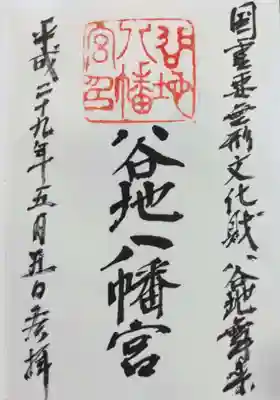 国重要無形文化財 谷地舞楽
谷地
八幡
宮印
谷地八幡宮
平成二十九年五月五日参拝